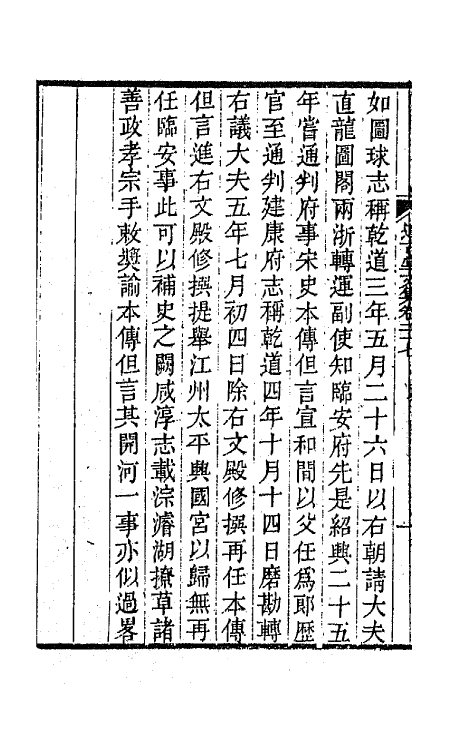 如圖球志稱乾道三年五月二十六日以右朝請大夫
直龍圖閣兩浙轉運副使知臨安府先是紹興二十五
年嘗通判府事宋史本傳但言宣和間以父任爲郎歷
官至通判建康府志稱乾道四年十月十四日磨勘轉
右議大夫五年七月初四日除右文殿修撰再任本傳
但言進右文殿修撰提舉江州太平興國宮以歸無再
任臨安事此可以補史之闕咸淳志載淙濬湖撩草諸
善政孝宗手敕奬諭本傳但言其開河一事亦似過畧